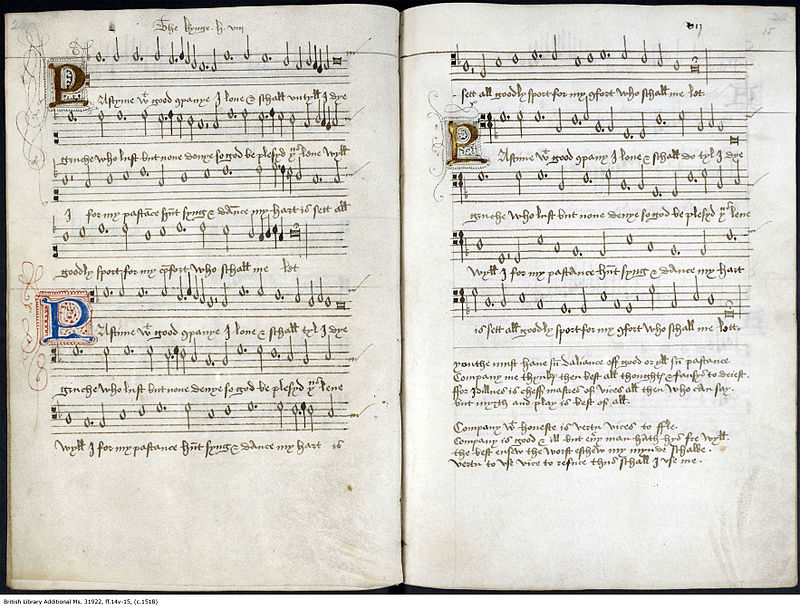 The kynge .h. viij
Pastyme wt good companye I love & schall untyll I dye
gruche who lust but none denye so god be plesyd thus leve wyll
I for my pastance hunt syng & dance my hart is sett all
goodly sport for my comfort who schall me let
Pastime wt good companye I love & schall tyl I dye
gruche who lust but none denye so god be plesyd thus leve
wyll I for my pastance hunt syng & dance my hart is
vij
15
sett all goodly sport for my comfort who schall me let
Pastime wt good company I love & schall do tyl I dye
gruche who lust but none denye so god be plesyd thus leve
wyll I for my pastance hunt syng & dance my hart
is sett all goodly sport for my comfort who schall me lett.
youthe must have sum daliance off good or yll sum pastance.
Company me thynks then best all thoughts & fansys to deiest.
ffor Idillnes is cheff mastres of vices all then who can say.
but myrth and play is best of all.
Company wt honeste is vertu vices to ffle.
Company is good & ill but every man hath hys fre wyll.
the best ensew the worst eschew my mynde schalbe.
vertu to use vice to refuce thus schall I use me.
British Library Additional Ms. 31922, ff.14v-15, (c.1518)